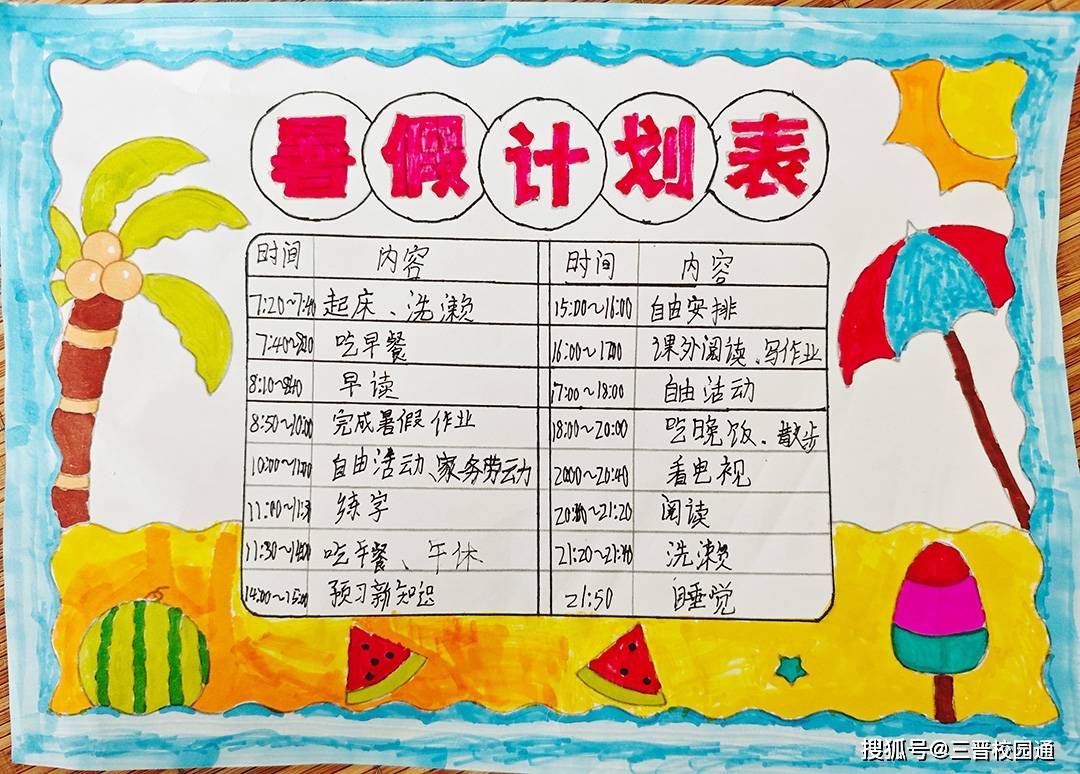 暑假计划表
时间 内容 时间 内容
7:20~7:40 起床、洗濑 15:00~16:00 自由安排
7:40~8:10 吃早餐 16:00~17:00 课外阅读、写作业
8:10~8:40 早读 17:00~18:00 自由活动
8:50~10:00 完成暑假作业 18:00~20:00 吃晚饭、散步
10:00~11:00 自由活动、家务劳动 20:00~20:40 看电视
11:00~11:30 练字 20:40~21:20 阅读
11:30~14:00 吃午餐、午休 21:20~21:40 洗濑
14:00~15:00 预习新知识 21:50 睡觉
搜狐号@三晋校园通